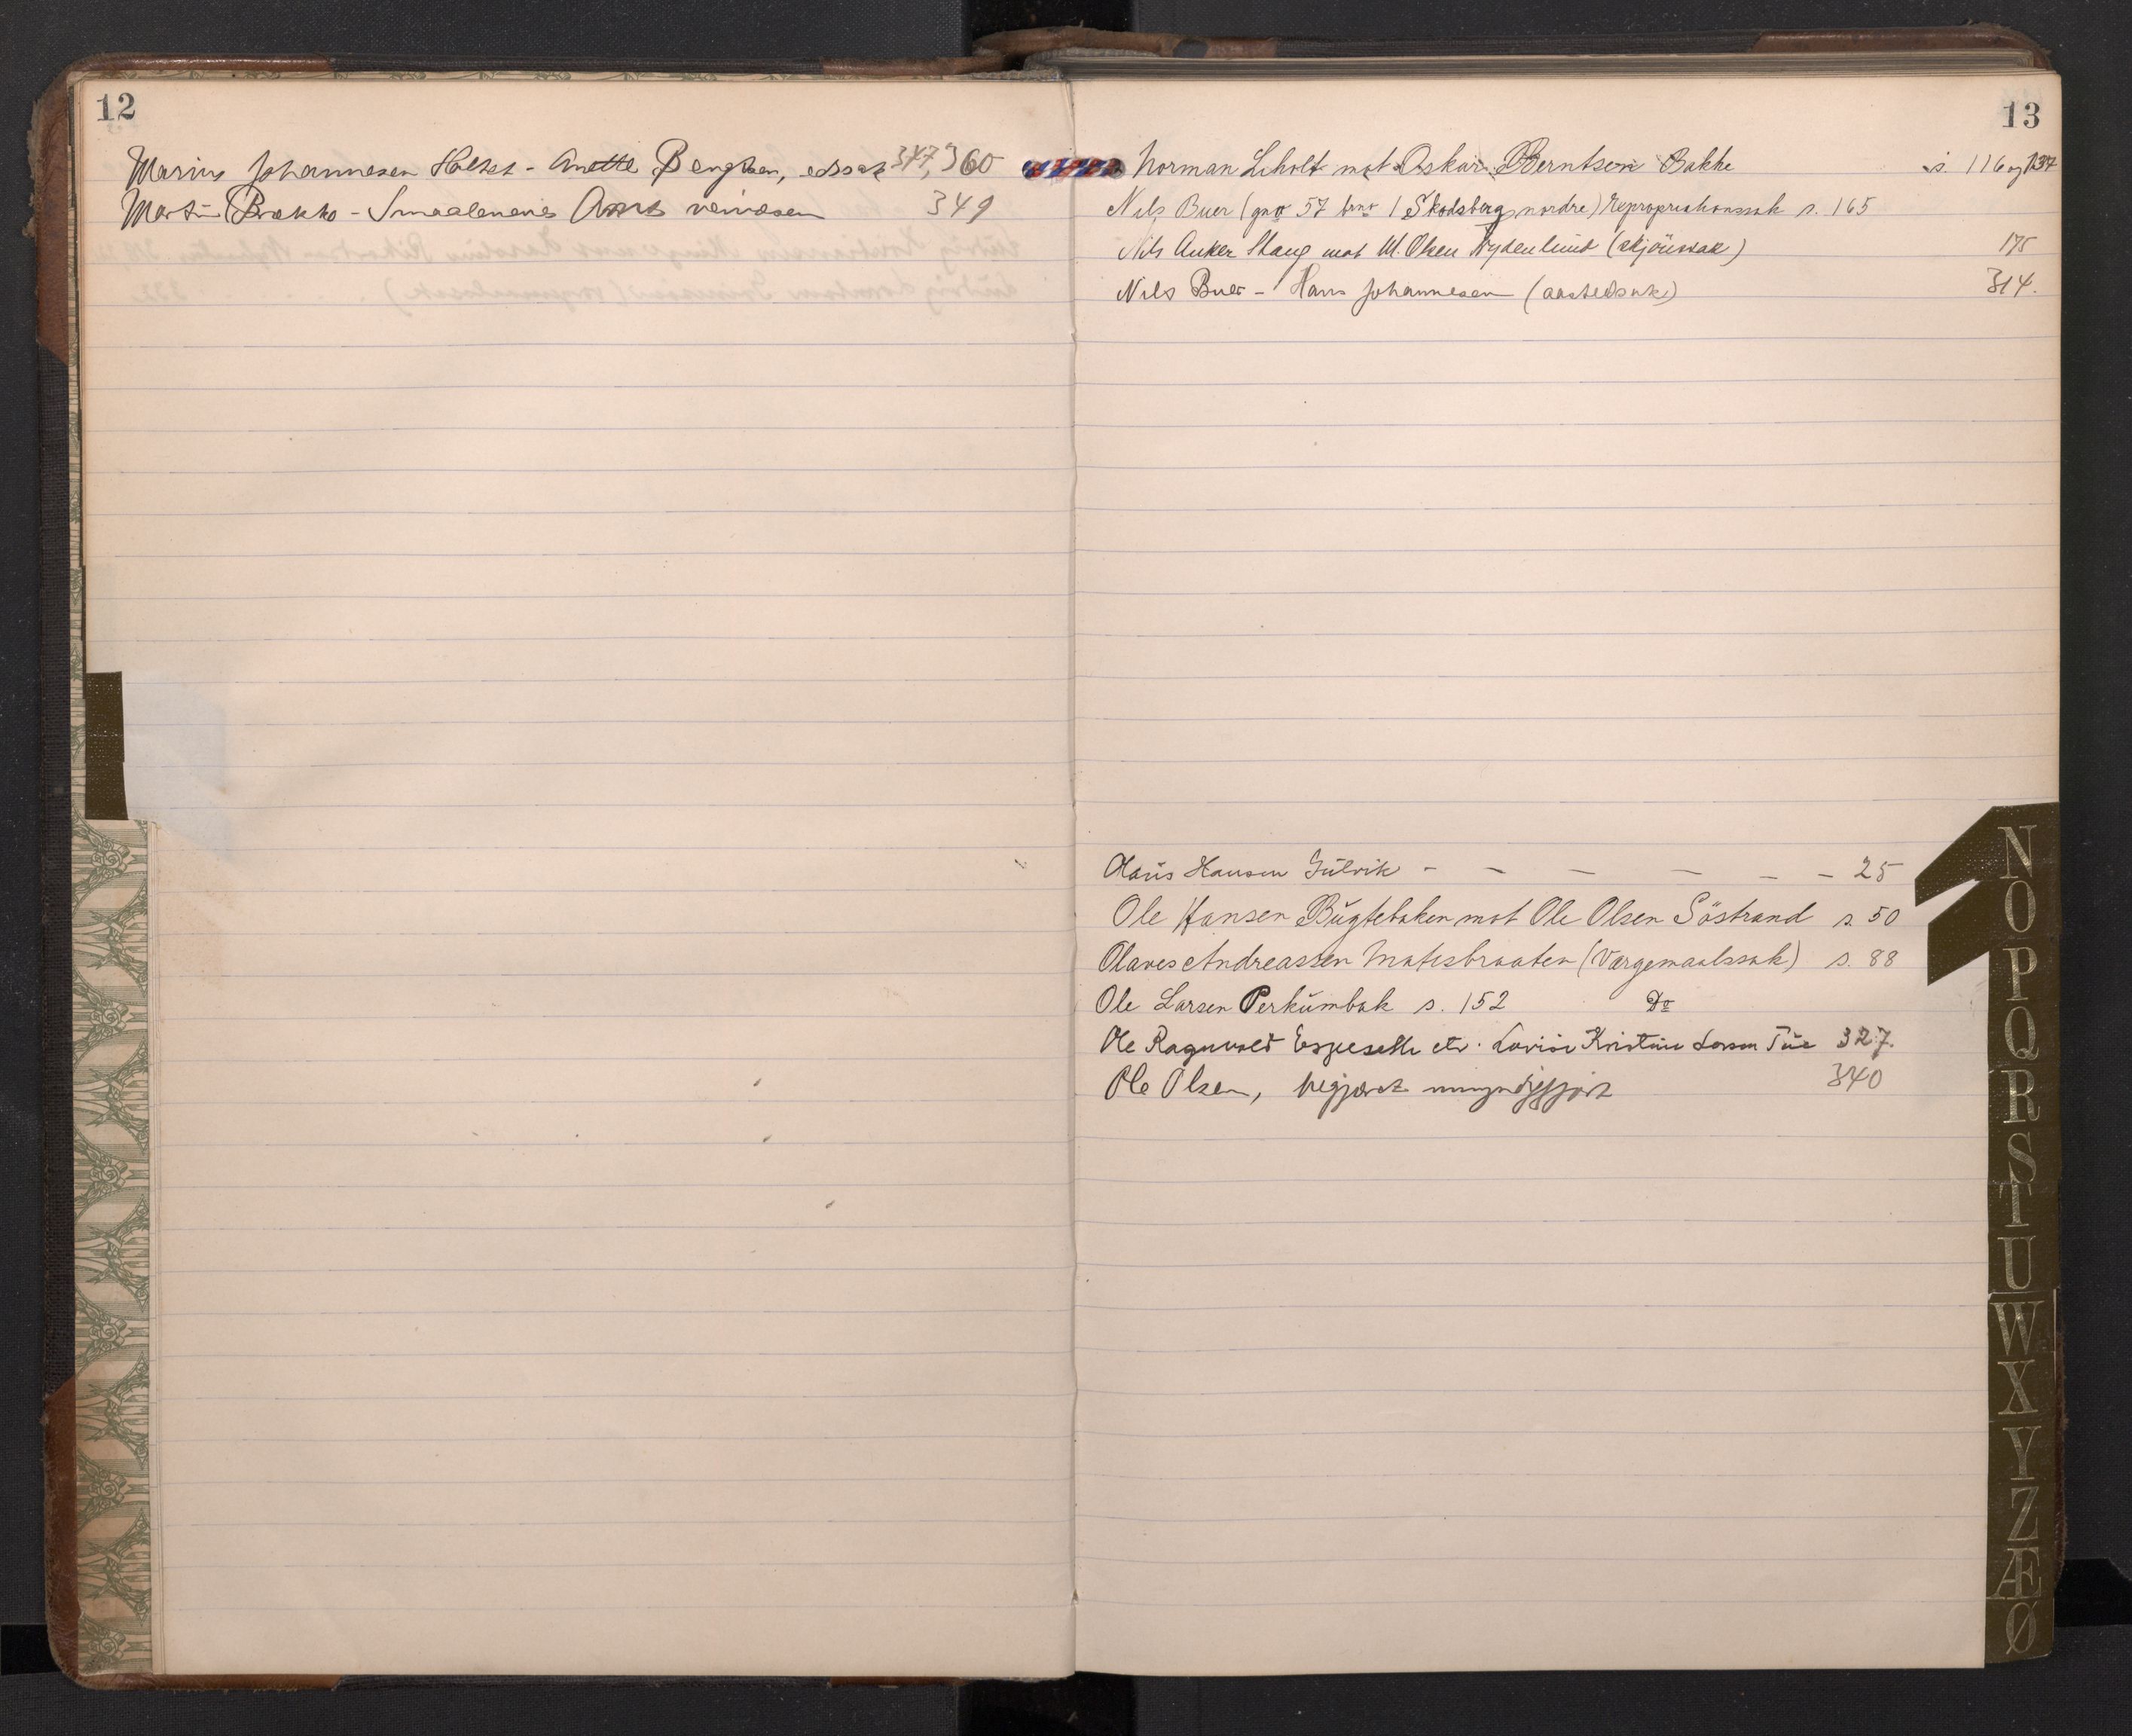 12
Marius Johannesen Holtet - Anette Bengtsen, edssak 347, 360
Martin Brække - Smaalenenes Amts veivæsen 349
13
Norman Liholt mot Oskar Berntsen Bakke s. 116 og 137
Nils Buer (gno 57 brno 1 Skodsberg nordre) Expropriationssak s. 165
Nils Anker Stang mot M. Olsen Nydenlund (skjönssak) 175
Nils Buer - Hans Johannesen (aastedsak) 314.
Olaus Hansen Gulvik - - - - - - 25
Ole Hansen Bugtebaken mot Ole Olsen Söstrand s. 50
Olaves Andreassen Matisbraaten (Vargemaalssak) s. 88
Ole Larsen Perkumbak s. 152 Do
Ole Ragnvald Espeseth etr. Lovise Kristine Larsen Tue 327.
Ole Olsen, begjært umyndiggjort 340
N
O
P
Q
R
S
T
U
W
X
Y
Z
Æ
Ø